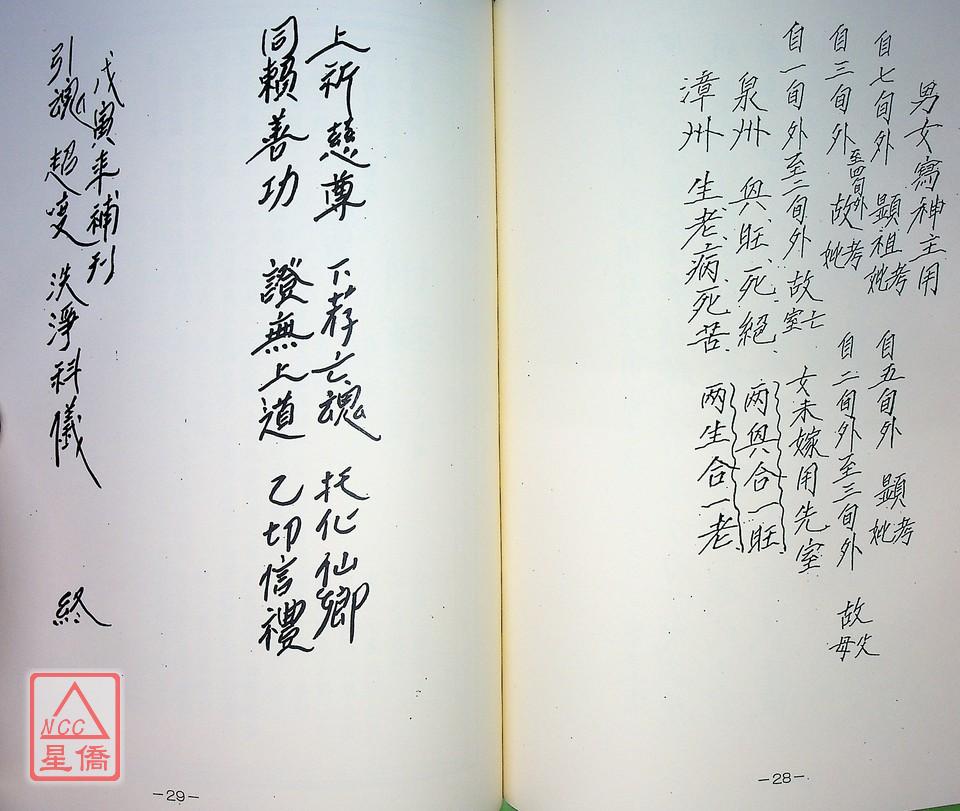 男女寫神主用
自七旬外 顯祖考妣 自五旬外 顯考妣
自三旬外至四旬外 故考妣 自二旬外至三旬外 故父母
自一旬外至二旬外 故亡室 女未嫁用先室
泉州 興、旺、死、絕 兩興合一旺
漳州 生、老、病、死、苦 兩生合一老
-28-
上祈慈尊 下荐亡魂 托化仙鄉
同賴善功 證無上道 乙切信禮
戊寅年補刋
引魂超度 洗淨科儀 終
-29-
NCC
星僑